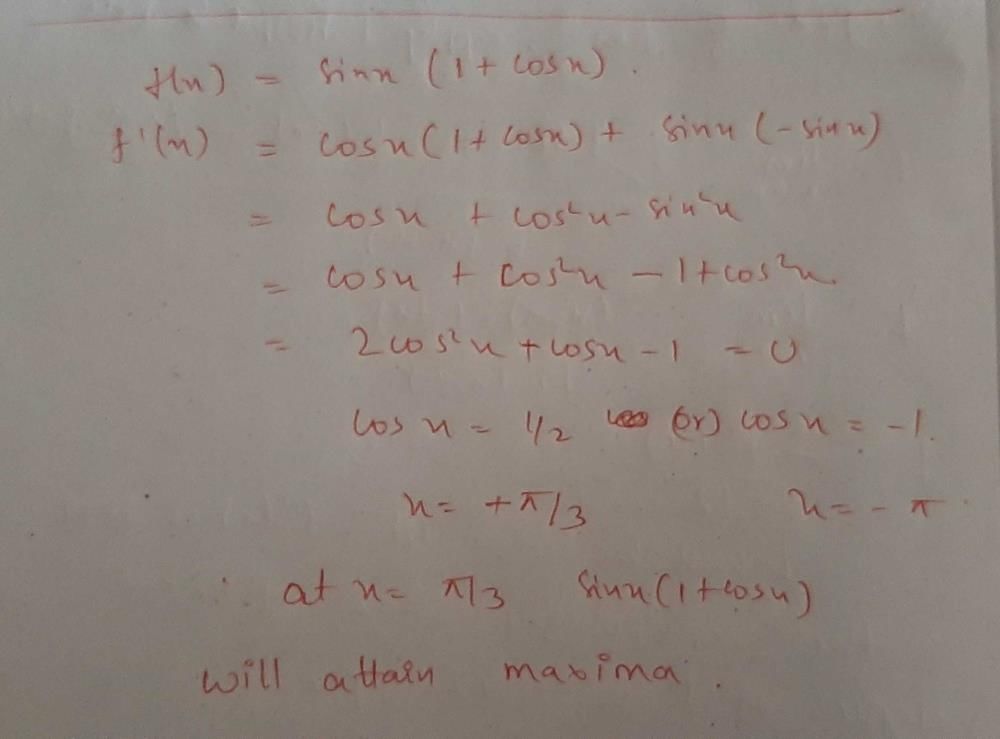 f(x) = sinx (1 + cosx).
f'(x) = cosx(1 + cosx) + sinx (-sinx)
= cosx + cos²x - sin²x
= cosx + cos²x - 1 + cos²x.
= 2cos²x + cosx - 1 = 0
cos x = 1/2 (or) cos x = -1.
x = +π/3 x = -π.
∴ at x = π/3 sinx(1 + cosx)
will attain maxima.